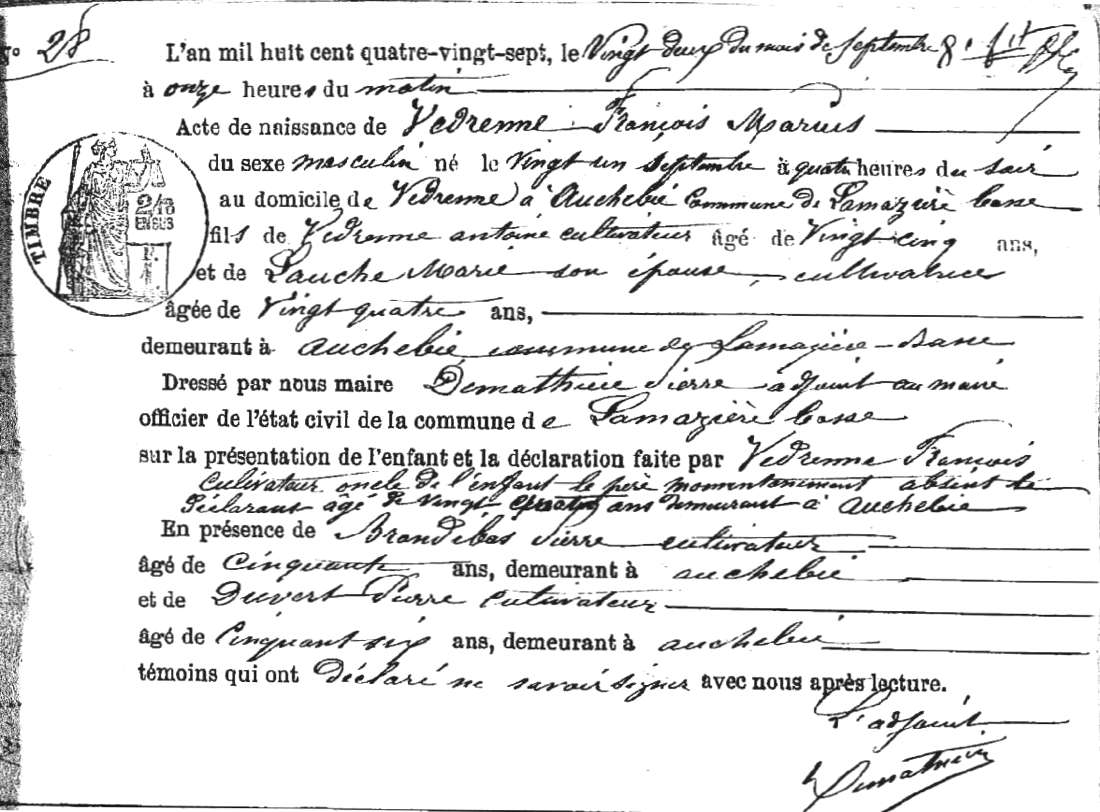 No 28
L'an mil huit cent quatre-vingt-sept, le Vingt deux du mois de Septembre
à onze heures du matin
Acte de naissance de Vedrenne François Marius
du sexe masculin né le Vingt un Septembre à quatre heures du soir
au domicile de Vedrenne à Auchebie commune de Lamazière basse
fils de Vedrenne antoine cultivateur âgé de Vingt cinq ans,
et de Lauche Marie son épouse, cultivatrice
âgée de Vingt quatre ans,
demeurant à auchebie commune de Lamazière-Basse
Dressé par nous maire Demathieu Pierre adjoint au maire
officier de l'état civil de la commune de Lamazière basse
sur la présentation de l'enfant et la déclaration faite par Vedrenne François
cultivateur oncle de l'enfant le père momentanément absent le
déclarant âgé de vingt quatre ans demeurant à auchebie
En présence de Brondibas Pierre cultivateur
âgé de cinquante ans, demeurant à auchebie
et de Duvert Pierre cultivateur
âgé de Cinquant six ans, demeurant à auchebie
témoins qui ont déclaré ne savoir signer avec nous après lecture.
L'adjoint
Demathieu
TIMBRE
2/10
EN SUS